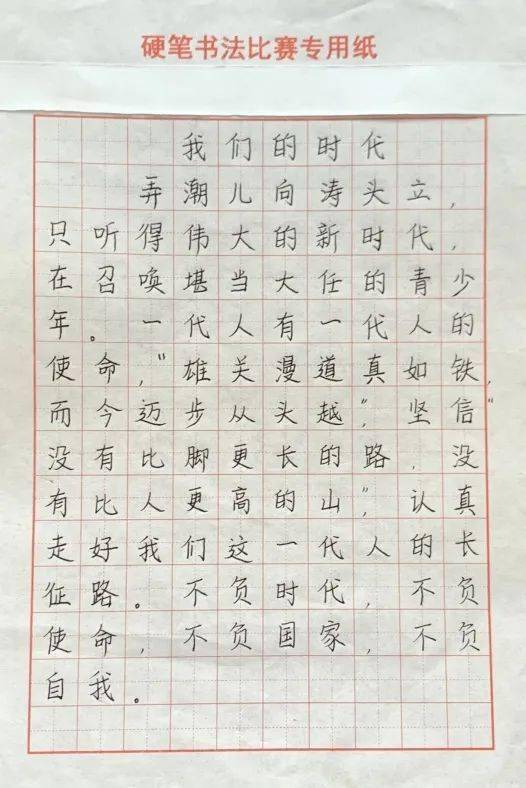 硬笔书法比赛专用纸
我们的时代
弄潮儿向涛头立，
只听得伟大的新时代，
在召唤堪当大任的青少
年。一代人有一代人的
使命，“雄关漫道真如铁，
而今迈步从头越”，坚信“
没有比脚更长的路，没
有比人更高的山”，认真
走好我们这一代人的长
征路。不负时代，不负
使命，不负国家，不负
自我。